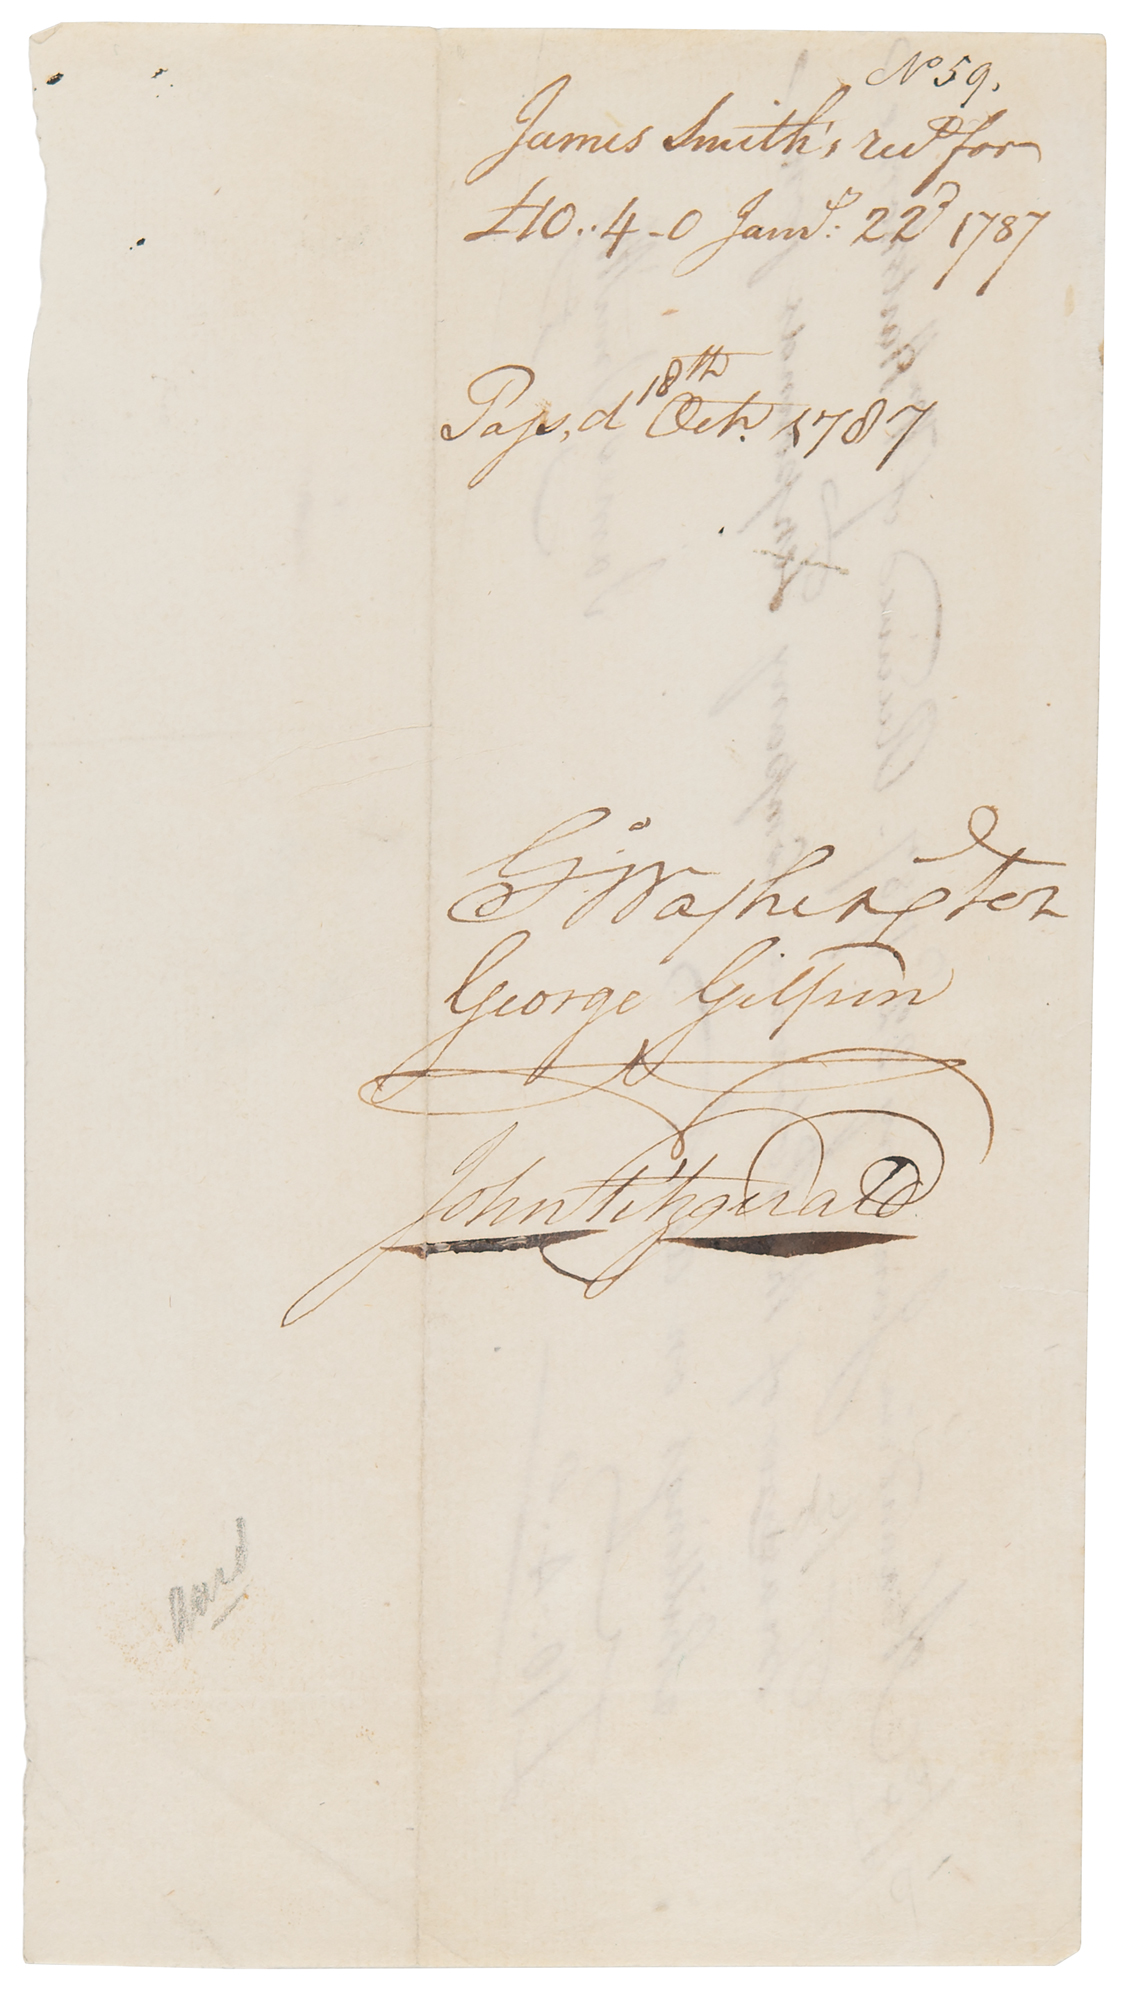 No 59.
James Smith's recd for
£10..4-0 Jany: 22d 1787
Pass,d 18th Octr. 1787
Go: Washington
George Gilpin
John Fitzgerald